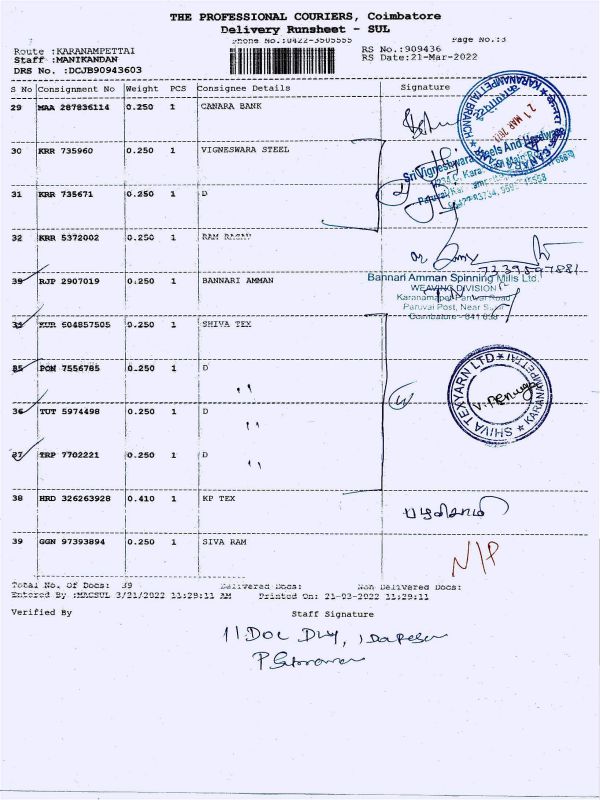 THE PROFESSIONAL COURIERS, Coimbatore
Delivery Runsheet - SUL
Phone No.:0422-3505555 Page No.:3
Route :KARANAMPETTAI RS No.:909436
Staff :MANIKANDAN RS Date:21-Mar-2022
DRS No. :DCJB90943603
S No Consignment No Weight PCS Consignee Details Signature
29 MAA 287836114 0.250 1 CANARA BANK
30 KRR 735960 0.250 1 VIGNESWARA STEEL
31 KRR 735671 0.250 1 D
32 KRR 5372002 0.250 1 RAM
7339597881
33 RJP 2907019 0.250 1 BANNARI AMMAN
Bannari Amman Spinning Mills Ltd.
WEAVING DIVISION
Karanampet Paruvai Road
Paruvai Post, Near
Coimbatore - 641 658
34 KUR 504857505 0.250 1 SHIVA TEX
35 PON 7556785 0.250 1 D
36 TUT 5974498 0.250 1 D
SHIVA TEXYARN LTD ★ KARANAMPETTAI ★
37 TRP 7702221 0.250 1 D
38 HRD 326263928 0.410 1 KP TEX
39 GGN 97393894 0.250 1 SIVA RAM
N/P
Total No. Of Docs: 39 Delivered Docs: Non Delivered Docs:
Entered By :MACSUL 3/21/2022 11:29:11 AM Printed On: 21-03-2022 11:29:11
Verified By Staff Signature